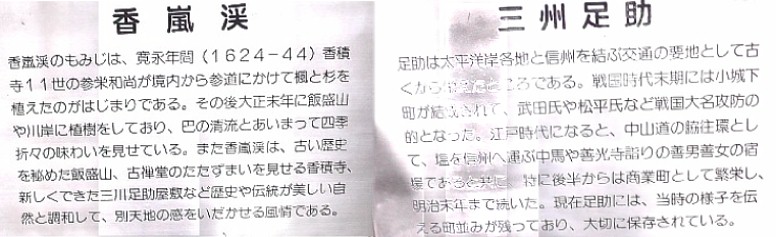 香嵐渓
香嵐渓のもみじは、寛永年間（1624−44）香積
寺11世の参栄和尚が境内から参道にかけて楓と杉を
植えたのがはじまりである。その後大正末年に飯盛山
や川岸に植樹をしており、巴の清流とあいまって四季
折々の味わいを見せている。また香嵐渓は、古い歴史
を秘めた飯盛山、古禅堂のたたずまいを見せる香積寺、
新しくできた三川足助屋敷など歴史や伝統が美しい自
然と調和して、別天地の感をいだかせる風情である。
三州足助
足助は太平洋岸各地と信州を結ぶ交通の要地として古
くから ところである。戦国時代末期には小城下
町が結成されて、武田氏や松平氏など戦国大名攻防の
的となった。江戸時代になると、中山道の脇往環とし
て、塩を信州へ運ぶ中馬や善光寺詣りの善男善女の宿
場であると共に、特に後半からは商業町として繁栄し、
明治末年まで続いた。現在足助には、当時の様子を伝
える町並みが残っており、大切に保存されている。